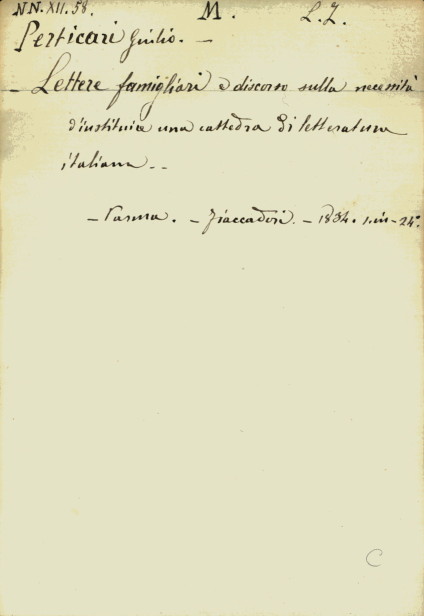 NN. XII. 58. M. L. Z.
Perticari Giulio. —
— Lettere famigliari e discorso sulla necessità
d'instituire una cattedra di letteratura
italiana - -
— Parma. — Fiaccadori. — 1834. 1. in - 24°.
C